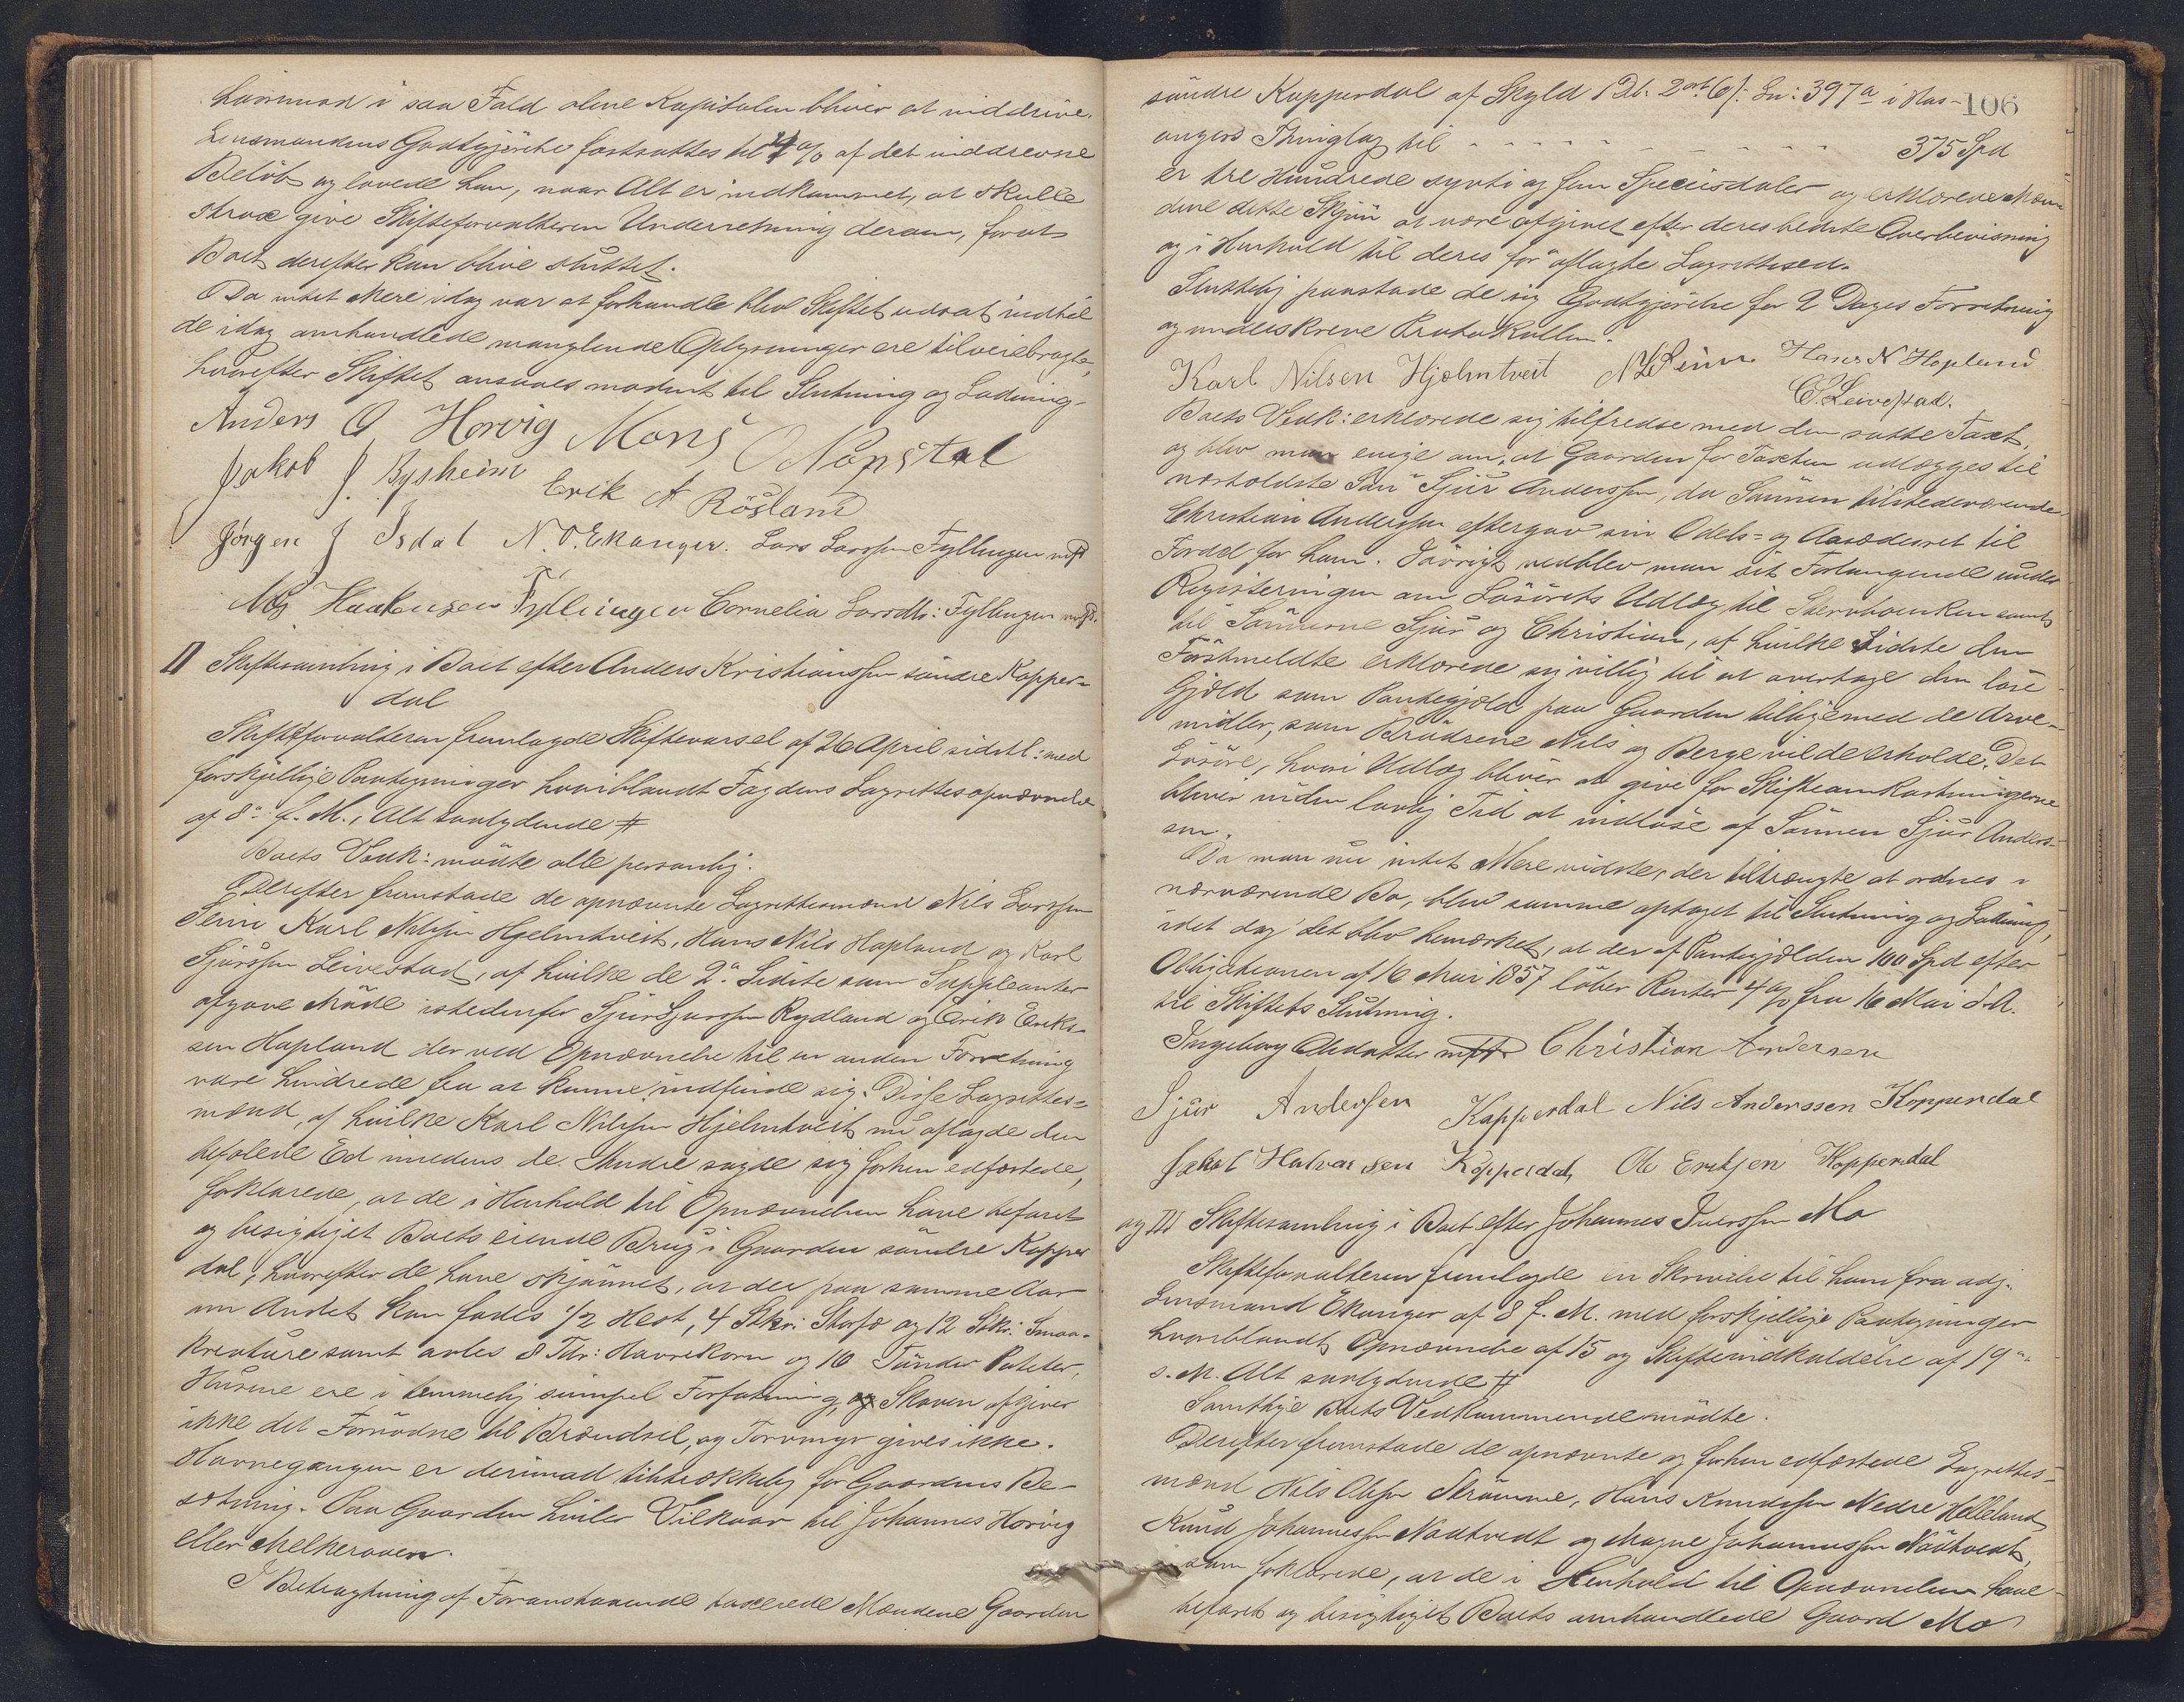 hvorimod i saa Fald alene Kapitalen bliver at inddrive.
Lensmandens Godtgjörelse fastsattes til 4 % af det inddrevne
Belöb og lovede han, naar Alt er indkommet, at skulle
strax give Skifteforvalteren Underretning derom, forat
Boet derefter kan blive sluttet.
Da intet Mere idag var at forhandle blev Skiftet udsat indtil
de idag omhandlede manglende Oplysninger ere tilveiebragte,
hvorefter Skiftet ansaaes modent til Slutning og Lodning.
Anders O Horvig Mons O Nopstal
Jakob J. Rysheim Erik A Rösland
Jörgen J Isdal N. O. Ekanger. Lars Larssen Fyllingen mfP
Nils Haakensen Fyllingen Cornelia Larsdtr: Fyllingen mfP.
II Skiftesamling i Boet efter Anders Kristianssen söndre Kopper-
dal
Skifteforvalteren fremlagde Skiftevarsel af 26 April sidstl: med
forskjellige Paategninger hvoriblandt Fogdens Lagrettesopnævnelse
af 8de f. M., Alt saalydende #
Boets Vedk: mödte alle personlig.
Derefter fremstode de opnævnte Lagrettesmænd Nils Larssen
Seim Karl Nilssen Hjelmtveit, Hans Nils Hopland og Karl
Sjurssen Leivestad, af hvilke de 2de Sidste som Suppleanter
afgave Möde istedenfor Sjur Sjurssen Rydland og Erik Erik-
sen Hopland der ved Opnævnelse til en anden Forretning
vare hindrede fra at kunne indfinde sig. Disse Lagrettes-
mænd, af hvilke Karl Nilssen Hjelmtveit nu aflagde den
befalede Ed imedens de Andre sagde sig forhen edfæstede,
forklarede, at de i Henhold til Opnævnelsen have befaret
og besigtiget Boets eiende Brug i Gaarden söndre Kopper
dal, hvorefter de have skjönnet, at der paa samme Aar
om Andet kan fødes 1/2 Hest, 4 Stkr: Storfæ og 12 Stkr: Smaa-
kreature samt avles 8 Tdr: Havrekorn og 16 Tönder Poteter,
Husene ere i temmelig simpel Forfatning, Skoven afgiver
ikke det Fornödne til Brændsel, og Torvmyr gives ikke.
Havnegangen er derimod tilstrækkelig for Gaardens Be-
sætning. Paa Gaarden hviler Vilkaar til Johannes Horvig
eller Melkeraaen.
I Betragtning af Foranstaaende taxerede Mændene Gaarden
106
söndre Kopperdal af Skyld 1 Db. 2 ort 6 s: Ln: 397a i Ham-
angers Thinglag til - - - - - - - - - 375 Spd
er tre Hundrede sytti og fem Speciesdaler og erklærede Mæn-
dene dette Skjön at være afgivet efter deres bedste Overbevisning
og i Henhold til deres för aflagte Lagrettesed.
Sluttelig paastode de sig Godtgjörelse for 2 Dages Forretning
og underskreve Protokollen.
Karl Nilsen Hjelmtveit N L Seim Hans N Hopland
C. S. Leivestad.
Boets Vedk: erklærede sig tilfredse med den satte Taxt,
og blev man enige om, at Gaarden for Taxten udlægges til
næstældste Sön Sjur Anderssen, da Sönnen tilstedeværende
Christian Anderssen eftergav sin Odels- og Aasædesret til
Fordel for ham. Iövrigt vedblev man sit Forlangende under
Registreringen om Lösörets Udlæg til Stervboenken samt
til Sönnerne Sjur og Christian, af hvilke Sidste den
Förstmeldte erklærede sig villig til at overtage den löse
Gjæld som Pantegjæld paa Gaarden tilligemed de Arve-
midler, som Brödrene Nils og Berge vilde erholde. Det
Lösöre, hvori Udlæg bliver at give for Skifteomkostningerne
bliver inden lovlig Tid at indlöse af Sönnen Sjur Anders-
sen.
Da man nu intet Mere vidste, der tiltrængte at ordnes i
nærværende Bo, blev samme optaget til Slutning og Lodning,
idet dog det blev bemærket, at der af Pantegjælden 100 Spd efter
Obligationen af 16 Mai 1857 löber Renter 4 % fra 16 Mai d. A.
til Skiftets Slutning.
Ingeborg Olsdatter mfP Christian Andersen
Sjur Andersen Kopperdal Nils Anderssen Kopperdal
Jakob Halvorsen Kopperdal, Ole Eriksen Kopperdal
og III Skiftesamling i Boet efter Johannes Iverssen Mo
Skifteforvalteren fremlagde en Skrivelse til ham fra adj.
Lensmand Ekanger af 8 f. M. med forskjellige Paategninger
hvoriblandt Opnævnelse af 15 og Skifteindkaldelse af 19de
s. M. Alt saalydende #
Samtlige Boets Vedkommende mödte.
Derefter fremstode de opnævnte og forhen edfæstede Lagrettes-
mænd Nils Olsen Strömme, Hans Knudssen Nedre Helleland
Knud Johannessen Nodtvedt og Magne Johannessen Nödtvedt,
som forklarede, at de i Henhold til Opnævnelsen have
befaret og besigtiget Boets omhandlede Gaard Mo